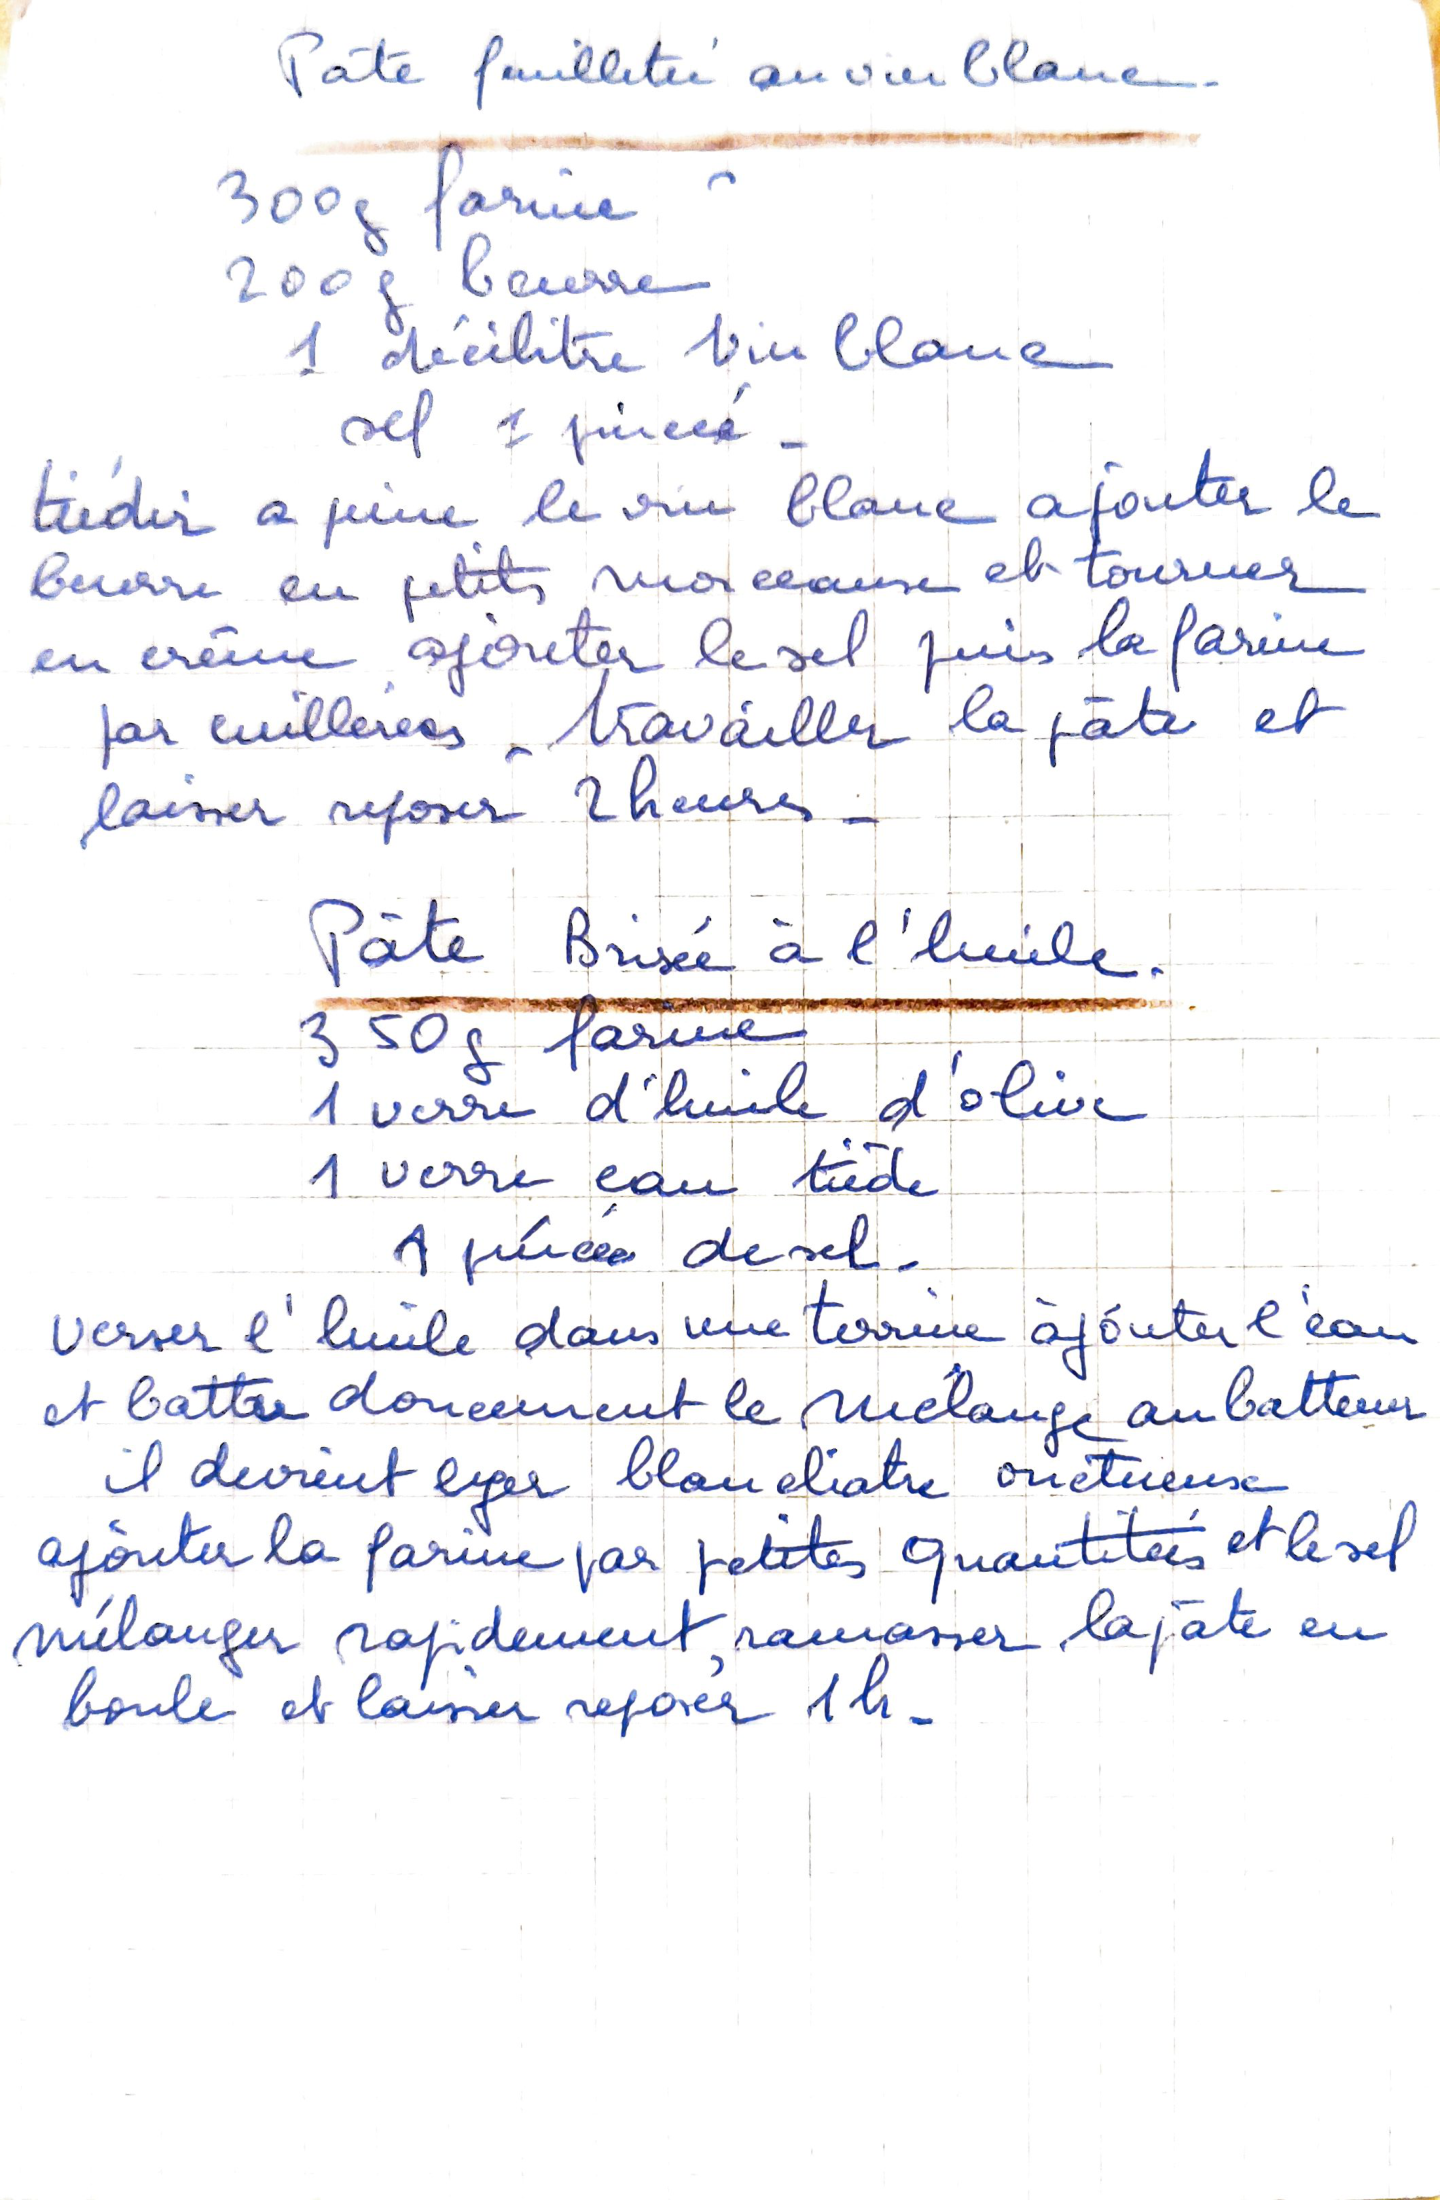 Pâte feuilleté au vin blanc.
300g farine
200g beurre
1 décilitre vin blanc
sel 1 pincée -
tiédir a peine le vin blanc ajouter le
beurre en petits morceaux et tourner
en crème ajouter le sel puis la farine
par cuillerées - travailler la pâte et
laisser reposer 2 heures -
Pâte Brisée à l'huile.
350g farine
1 verre d'huile d'olive
1 verre eau tiède
1 pincée de sel -
verser l'huile dans une terrine ajouter l'eau
et battre doucement le mélange au batteur
il devient leger blanchatre onctueux
ajouter la farine par petites quantités et le sel
mélanger rapidement, ramasser la pâte en
boule et laisser reposer 1h -